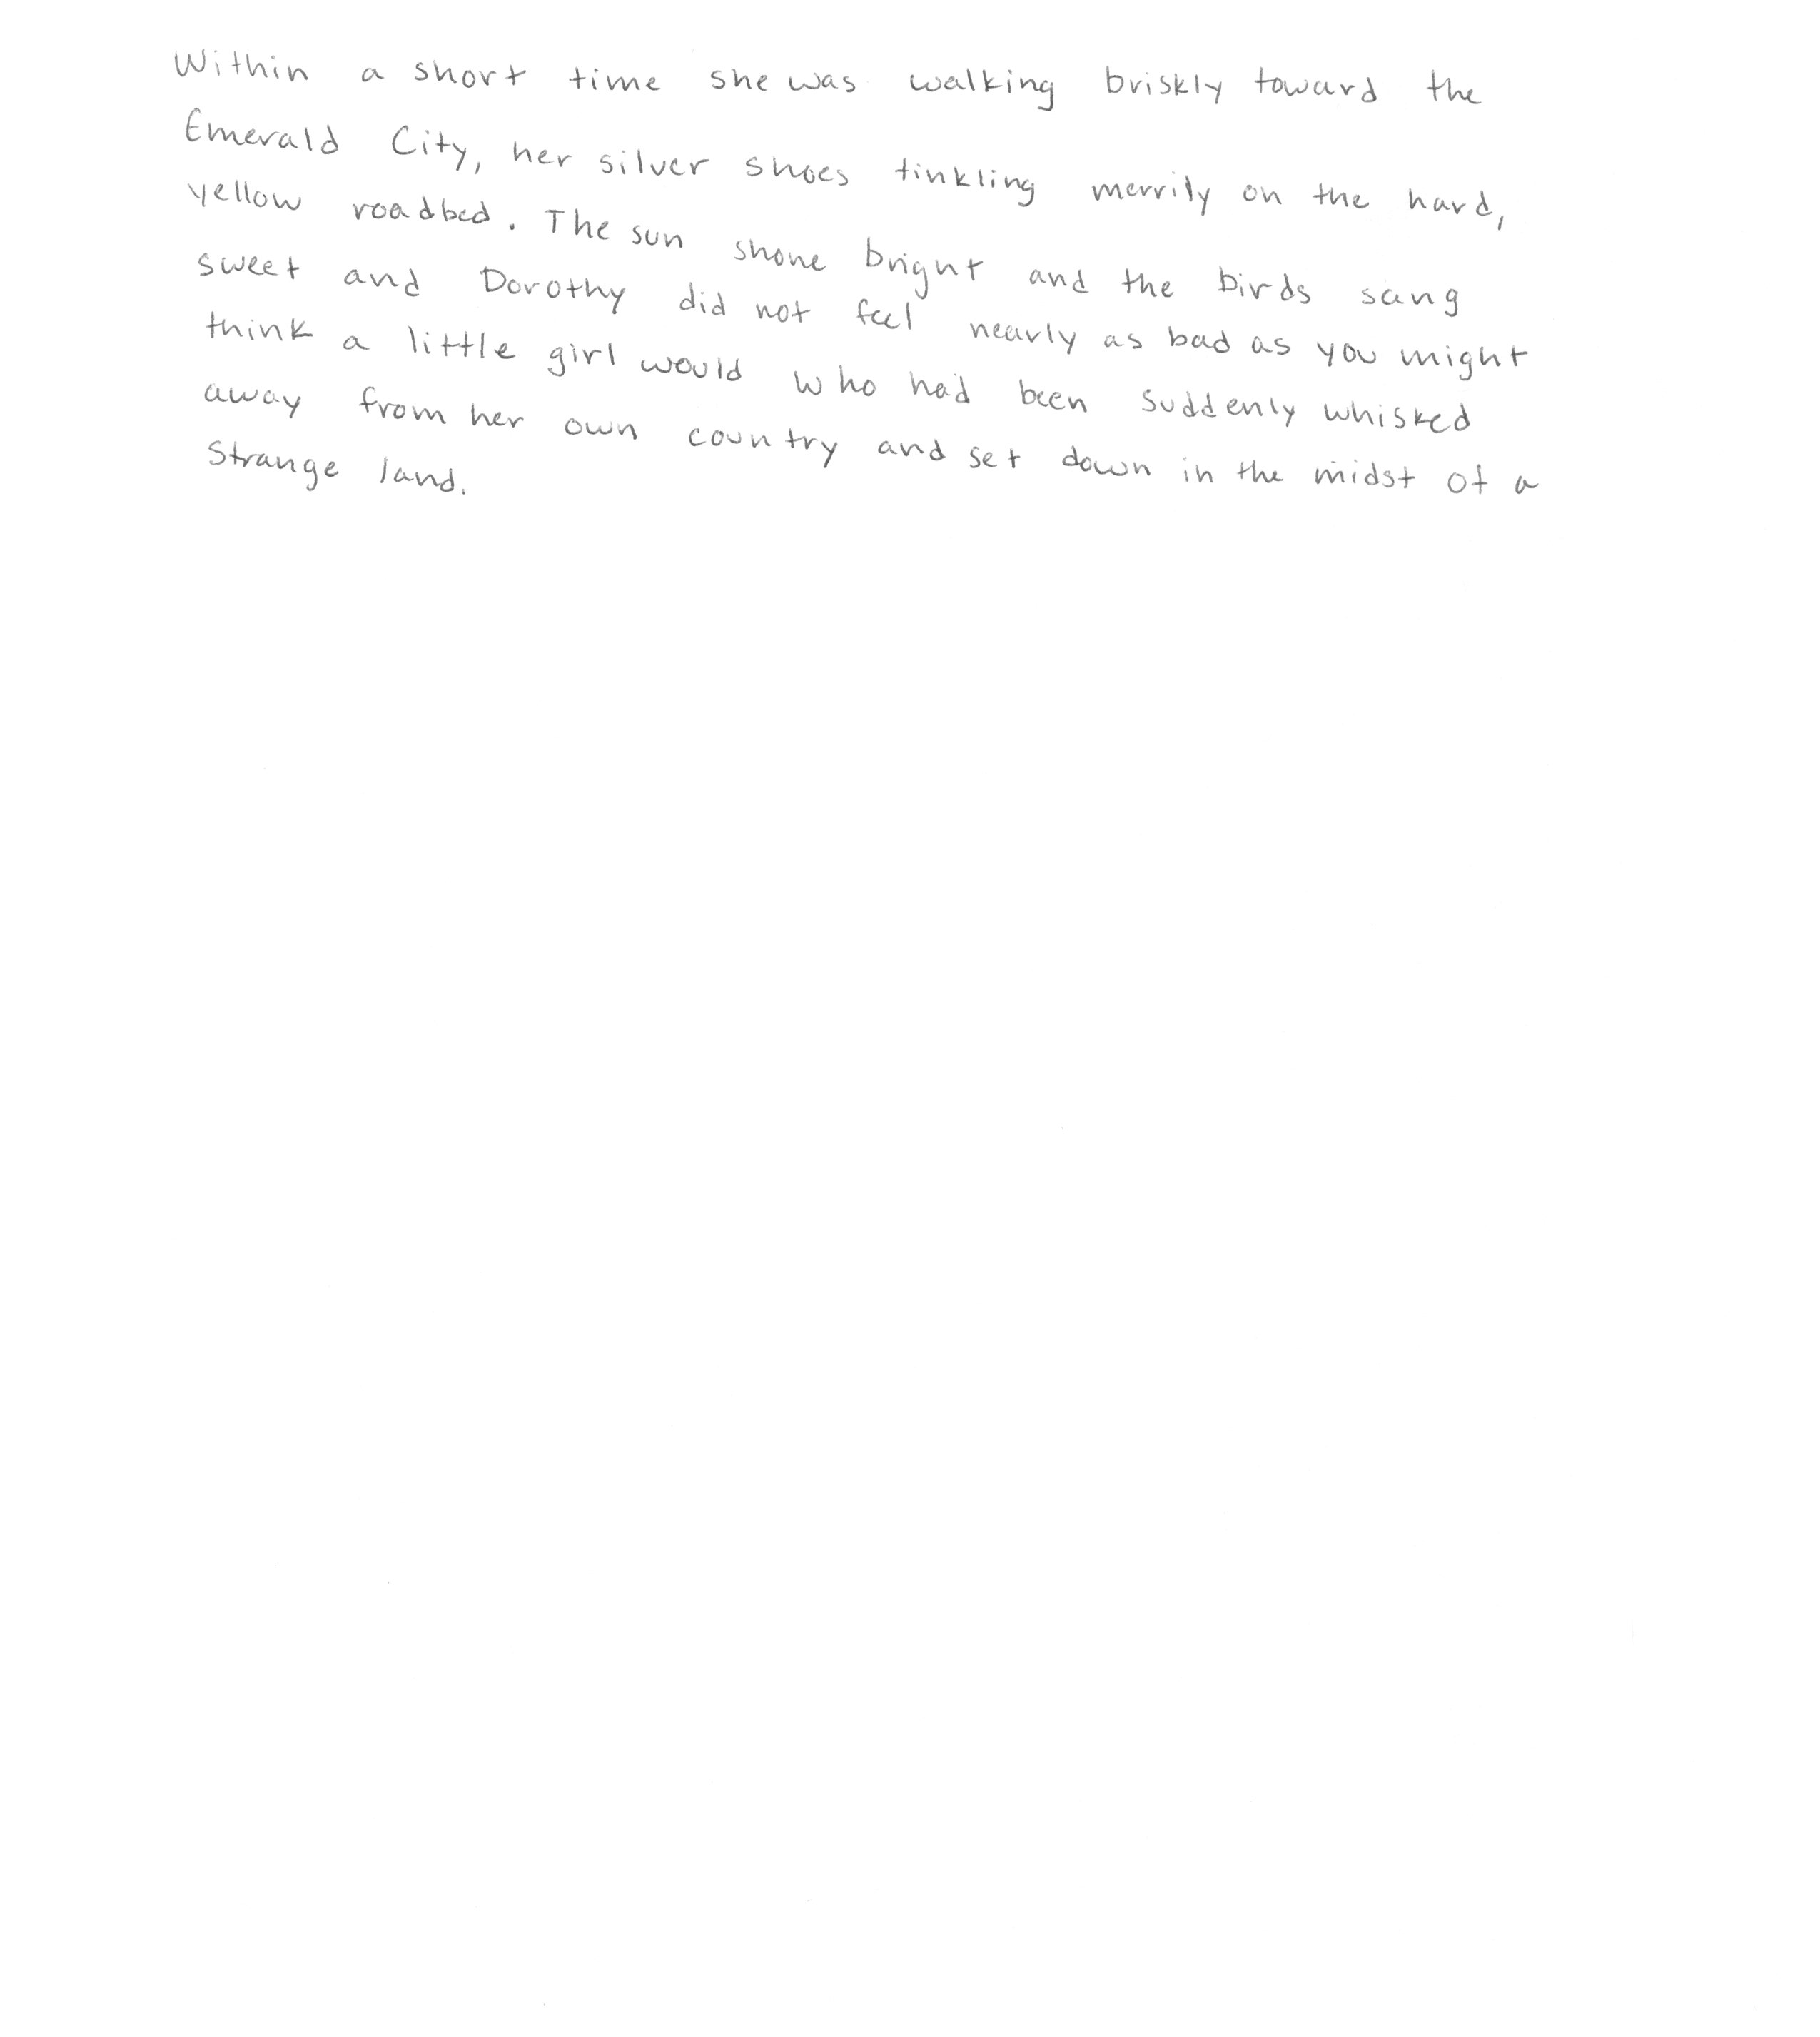 Within a short time she was walking briskly toward the
Emerald City, her silver shoes tinkling merrily on the hard,
yellow roadbed. The sun shone bright and the birds sang
sweet and Dorothy did not feel nearly as bad as you might
think a little girl would who had been suddenly whisked
away from her own country and set down in the midst of a
strange land.